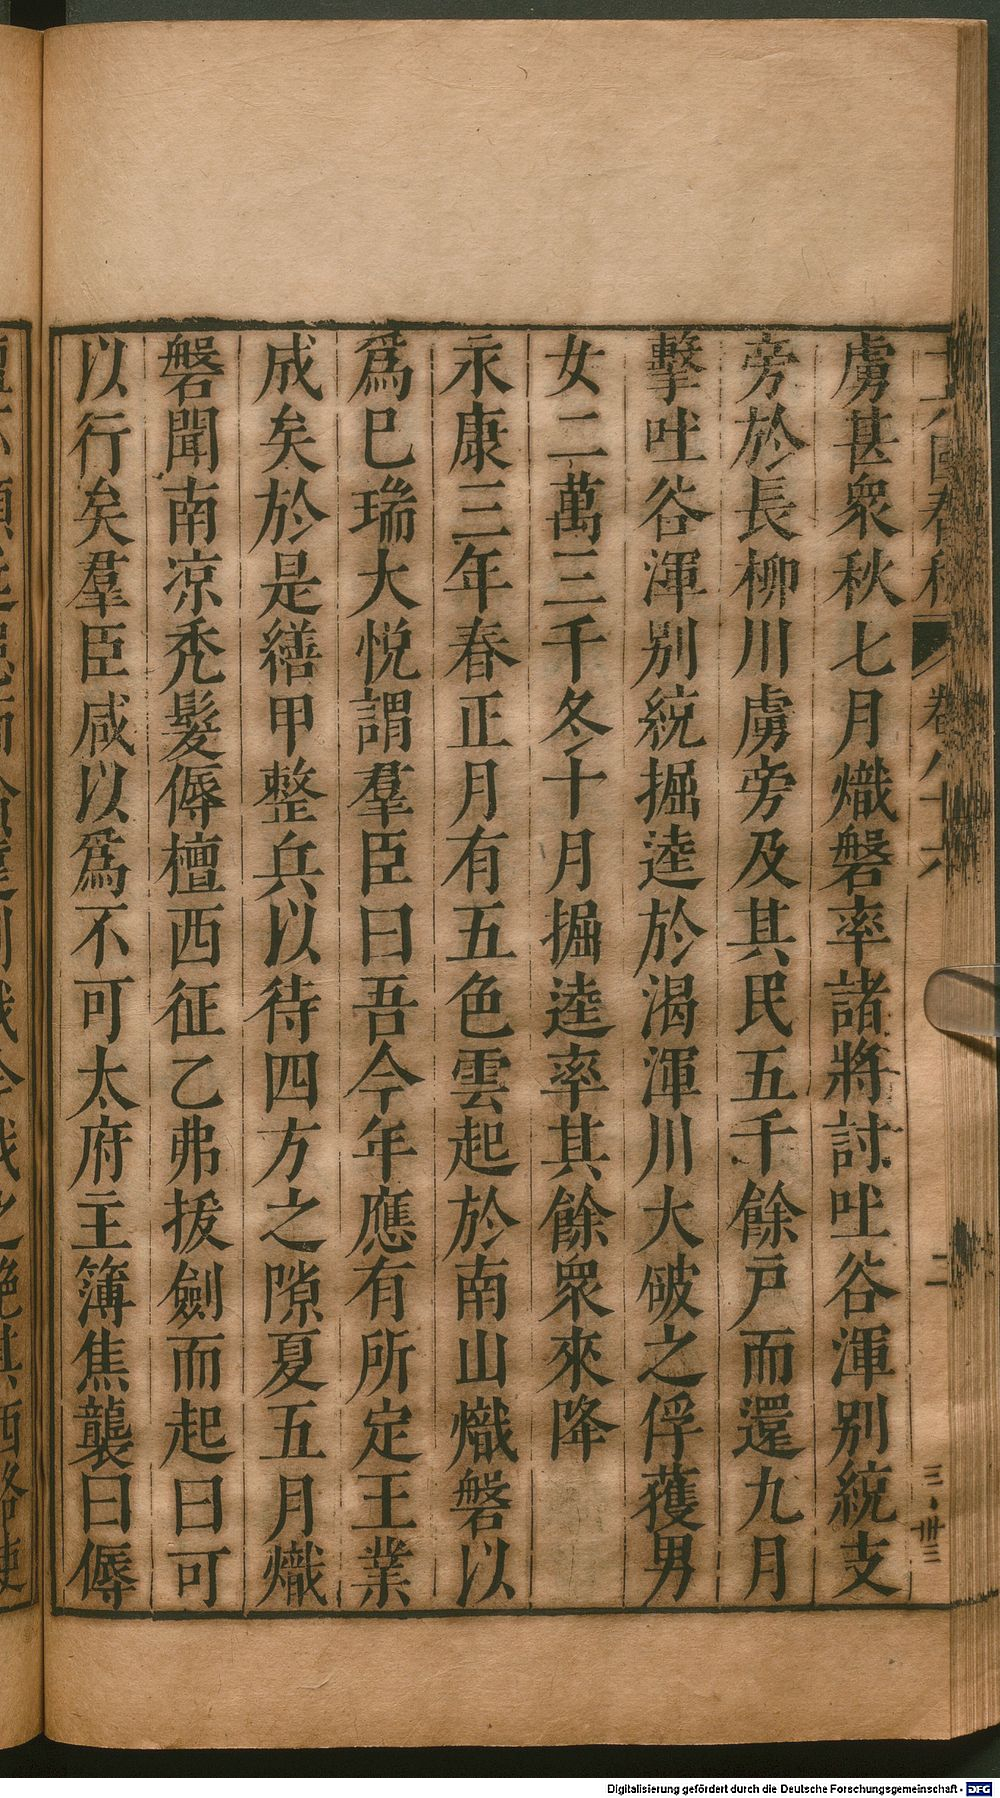 虜甚衆秋七月熾磐率諸將討吐谷渾別統支
旁於長柳川虜旁及其民五千餘戸而還九月
擊吐谷渾別統掘逵於渴渾川大破之俘獲男
女二萬三千冬十月掘逵率其餘眾來降
永康三年春正月有五色雲起於南山熾磐以
爲巳瑞大悦謂羣臣曰吾今年應有所定王業
成矣於是繕甲整兵以待四方之隙夏五月熾
磐聞南凉秃髮傉檀西征乙弗拔劍而起曰可
以行矣羣臣咸以爲不可太府主簿焦襲曰傉
卷八十六
二
三·卅三
Digitalisierung gefördert durch die Deutsche Forschungsgemeinschaft - DFG